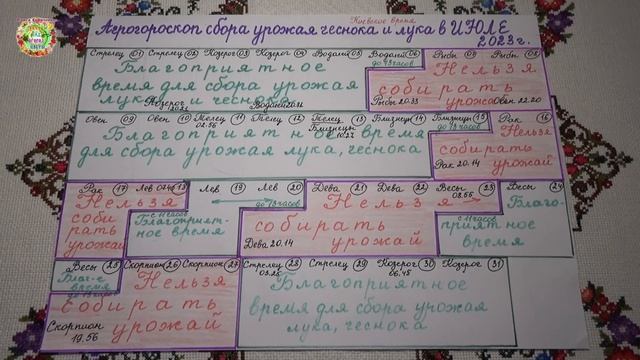 Киевское время
Агрогороскоп сбора урожая чеснока и лука в ИЮЛЕ
2023 г.
Стрелец 01 Стрелец 02 Козерог 03 Козерог 04 Водолей 05 Водолей 06 Рыбы Рыбы 08
до 18 часов
Благоприятное
время для сбора урожая
лука и чеснока
Козерог
Водолей
Рыбы 20.33
Нельзя
собирать
урожай
Овен 22.20
Овен 09 Овен 10 Телец 11 Телец 12 Телец 13 Близнецы 14 Близнецы 15 Рак 16
Близнецы
до 18 часов
Благоприятное время
для сбора урожая лука, чеснока
Нельзя
собирать
урожай
Рак 20.14
Рак 17 Лев 18 Лев 19 Лев 20 Дева 21 Дева 22 Весы 23 Весы 24
Нельзя
собирать
урожай
с 11 часов
Благоприятное время
до 18 часов
Дева 20.14
Нельзя
собирать
урожай
с 11 часов
Благоприятное
время
Весы 25 Скорпион 26 Скорпион 27 Стрелец 28 Стрелец 29 Козерог 30 Козерог 31
Благ-е
время
до 18 часов
Скорпион
19.56
Нельзя
собирать
урожай
Благоприятное
время для сбора урожая
лука, чеснока